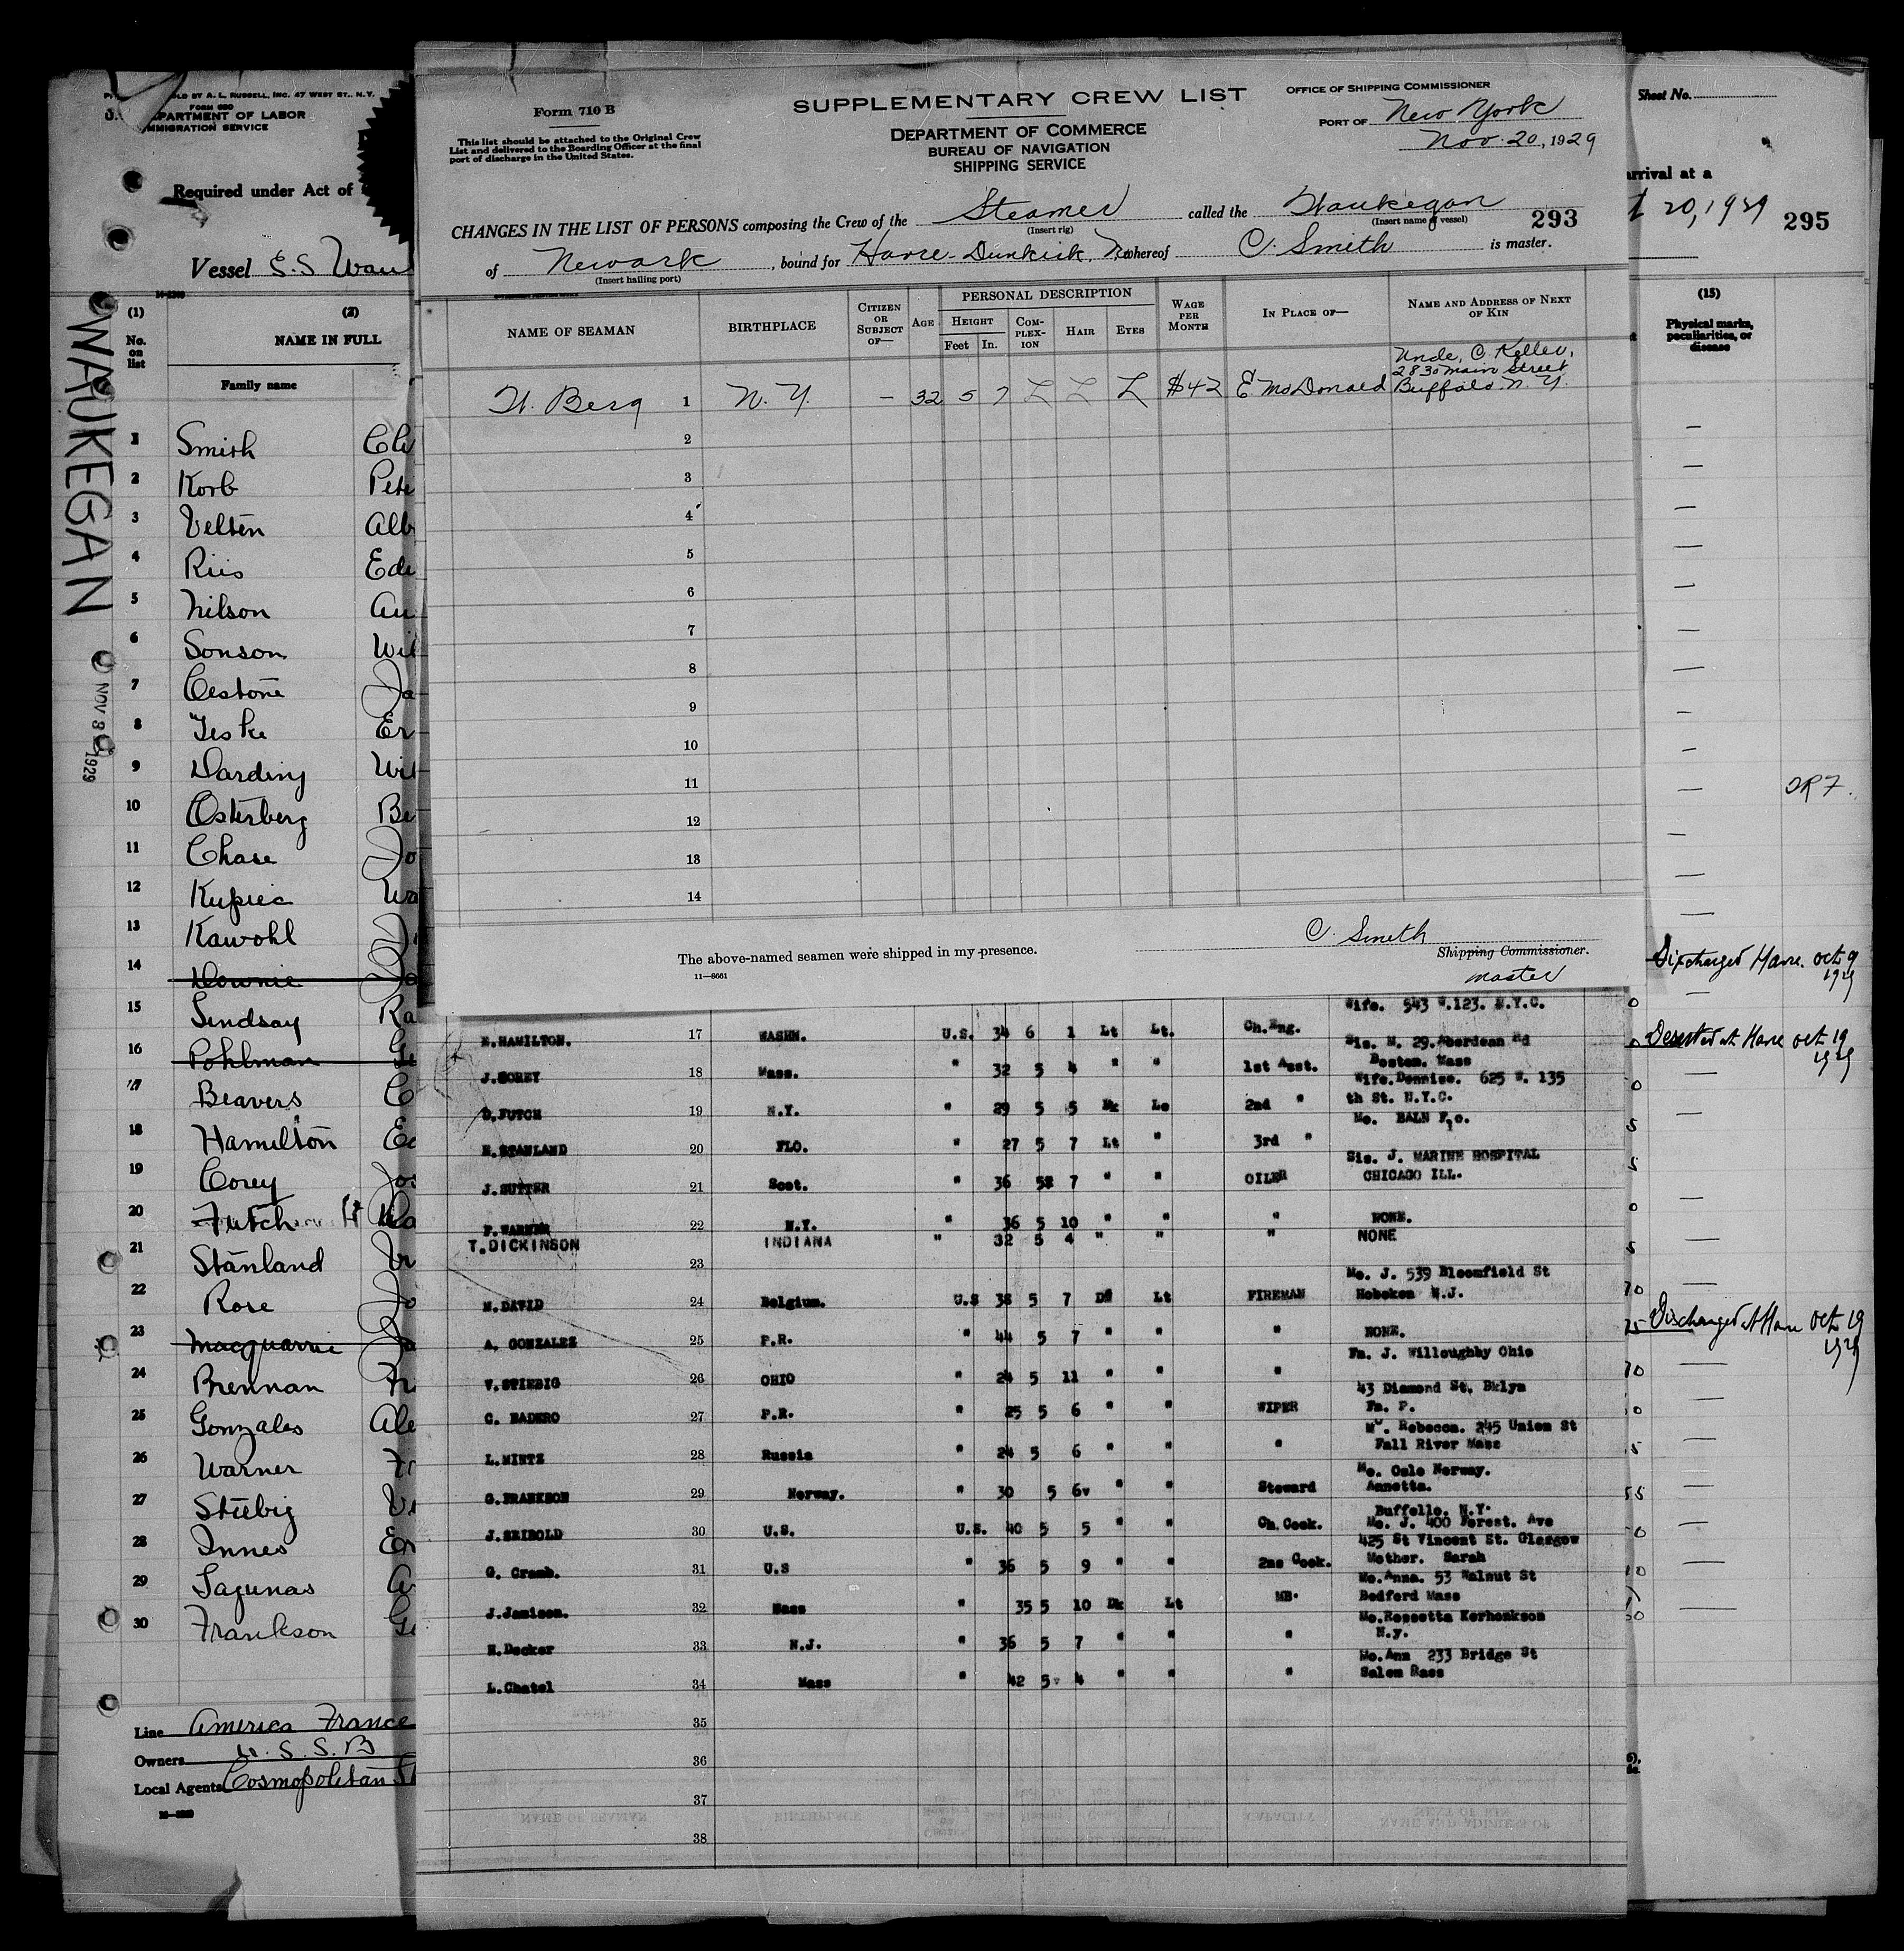 SOLD BY A. L. RUSSELL, INC. 47 WEST ST., N. Y.
FORM 680
DEPARTMENT OF LABOR
IMMIGRATION SERVICE
Required under Act of
Vessel S.S Wau
(1) (2)
No. on list
NAME IN FULL
Family name
1 Smith Cl
2 Korb Pete
3 Velten Alb
4 Riis Edw
5 Nilson Au
6 Sonson Wil
7 Cestone Ja
8 Teske Er
9 Darding Wil
10 Osterberg Be
11 Chase Jo
12 Kupiec Wa
13 Kawohl
14 Downie
15 Lindsay Ra
16 Pohlman Ge
17 Beavers C
18 Hamilton Ed
19 Corey Jos
20 Futch
21 Stanland Vr
22 Rose Jo
23 Macquarrie Ja
24 Brennan Fr
25 Gonzales Ale
26 Warner Fr
27 Stiebig Vi
28 Innes Er
29 Lagunas A
30 Frankson Ge
Line America France
Owners U. S. S. B
Local Agents Cosmopolitan
WAUKEGAN
NOV 8 1929
Form 710 B
This list should be attached to the Original Crew
List and delivered to the Boarding Officer at the final
port of discharge in the United States.
SUPPLEMENTARY CREW LIST
DEPARTMENT OF COMMERCE
BUREAU OF NAVIGATION
SHIPPING SERVICE
OFFICE OF SHIPPING COMMISSIONER
PORT OF New York
Nov. 20, 1929
CHANGES IN THE LIST OF PERSONS composing the Crew of the Steamer called the Waukegan 293
(Insert rig) (Insert name of vessel)
of Newark, bound for Havre - Dunkirk, whereof C. Smith is master.
(Insert hailing port)
NAME OF SEAMAN BIRTHPLACE CITIZEN OR SUBJECT OF— AGE PERSONAL DESCRIPTION WAGE PER MONTH IN PLACE OF— NAME AND ADDRESS OF NEXT OF KIN
HEIGHT COMPLEXION HAIR EYES
Feet In.
Uncle, C. Keller,
2830 Main Street
W. Berg 1 N. Y. — 32 5 7 L L L $42 E McDonald Buffalo. N. Y.
2
3
4
5
6
7
8
9
10
11
12
13
14
The above-named seamen were shipped in my presence.
C. Smith
Shipping Commissioner.
master
11—8661
Wife. 543 W.123. N.Y.C.
E.HAMILTON. 17 WASHN. U.S. 34 6 1 Lt Lt. Ch.Eng.
Sis. M. 29.Aberdean Rd
Boston. Mass
J.COREY 18 Mass. " 32 5 4 " " 1st Asst.
Wife.Dennise. 625 W. 135
th St. N.Y.C.
D.FUTCH 19 N.Y. " 29 5 5 Dk 2nd "
E.STANLAND 20 FLO. " 27 5 7 Lt " 3rd "
Sis. J. MARINE HOSPITAL
CHICAGO ILL.
J.SUTTER 21 Scot. " 36 7 " " OILER
F.WARNER 22 N.Y. " 36 5 10 " " " NONE.
T.DICKINSON INDIANA " 32 5 4 " " " NONE
23
Mo. J. 539 Bloomfield St
N.DAVID 24 Belgium. U.S 38 5 7 Lt FIREMAN Hoboken N.J.
A. GONZALES 25 P.R. " 44 5 7 " " " NONE.
Fa. J. Willoughby Ohio
V.STIEBIG 26 OHIO " 24 5 11 " " "
43 Diamond St. Bklyn
C. BADERO 27 P.R. " 25 5 6 " " WIPER Fa. P.
Mo. Rebecca. 245 Union St
Fall River Mass
L.MINTZ 28 Russia " 24 5 6 " " "
Mo. Oslo Norway.
G.FRANKSON 29 Norway. " 30 5 6 " " Steward Annetta.
Buffello. N.Y.
Mo. J. 400 Forest. Ave
J.SEIBOLD 30 U.S. U.S. 40 5 5 " " Ch.Cook.
425 St Vincent St. Glasgow
Mother. Sarah
G. Cramb. 31 U.S " 36 5 9 " " 2nd Cook.
Mo.Anna. 53 Walnut St
J.Jamison. 32 Mass " 35 5 10 Dk Lt MB. Bedford Mass
Mo.Rossetta Kerhonkson
N.y.
H.Decker 33 N.J. " 36 5 7 " " "
Mo.Ann 233 Bridge St
L.Chatel 34 Mass " 42 5 4 " " " Salem Mass
35
36
37
38
Sheet No.
arrival at a
t 20, 1929 295
(15)
Physical marks, peculiarities, or disease
Discharged Havre. oct 9
1929
Deserted at Havre oct 19
1929
Discharged at Havre Oct 19
1929